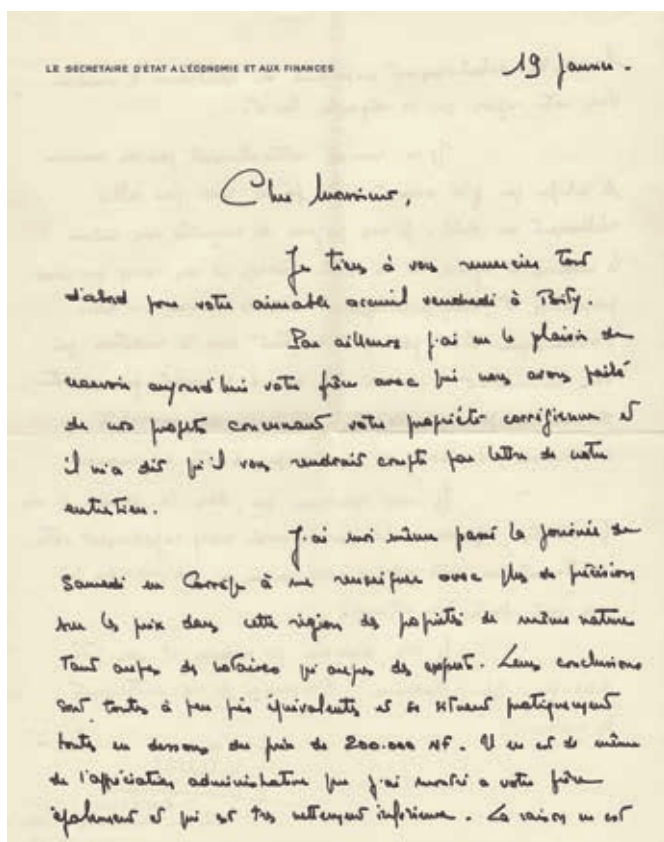 LE SECRÉTAIRE D'ÉTAT A L'ÉCONOMIE ET AUX FINANCES
19 Janvier.
Cher Monsieur,
Je tiens à vous remercier tout
d'abord pour votre aimable accueil vendredi à Bity.
Par ailleurs j'ai eu le plaisir de
recevoir aujourd'hui votre frère avec qui nous avons parlé
de nos projets concernant votre propriété corrézienne et
il m'a dit qu'il vous rendrait compte par lettre de notre
entretien.
J'ai moi même passé la journée de
Samedi en Corrèze à me renseigner avec plus de précision
sur les prix dans cette région des propriétés de même nature
tant auprès des notaires qu'auprès des expert. Leurs conclusions
sont toutes à peu près équivalentes et se situent pratiquement
toutes en dessous du prix de 200.000 NF. Il en est de même
de l'appréciation administrative que j'ai montré a votre frère
également et qui est très nettement inférieure. La raison en est